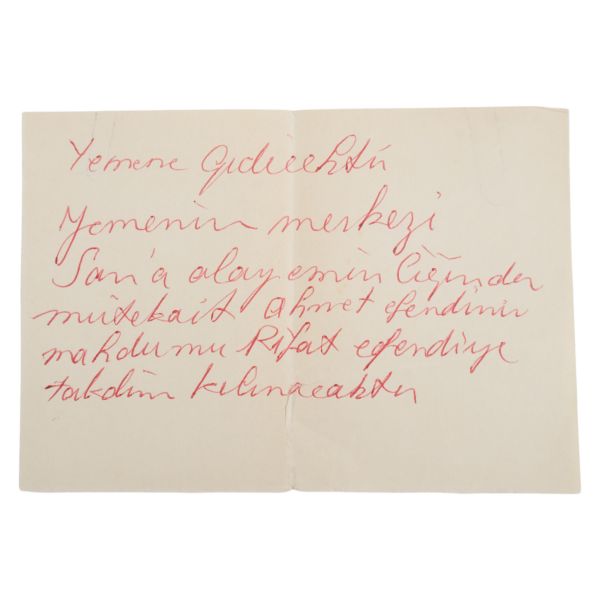 Yemene gidecektir
Yemenin merkezi
San'a alay emin liğinden
mütekait ahmet efendinin
mahdumu Rifat efendiye
takdim kılınacaktır